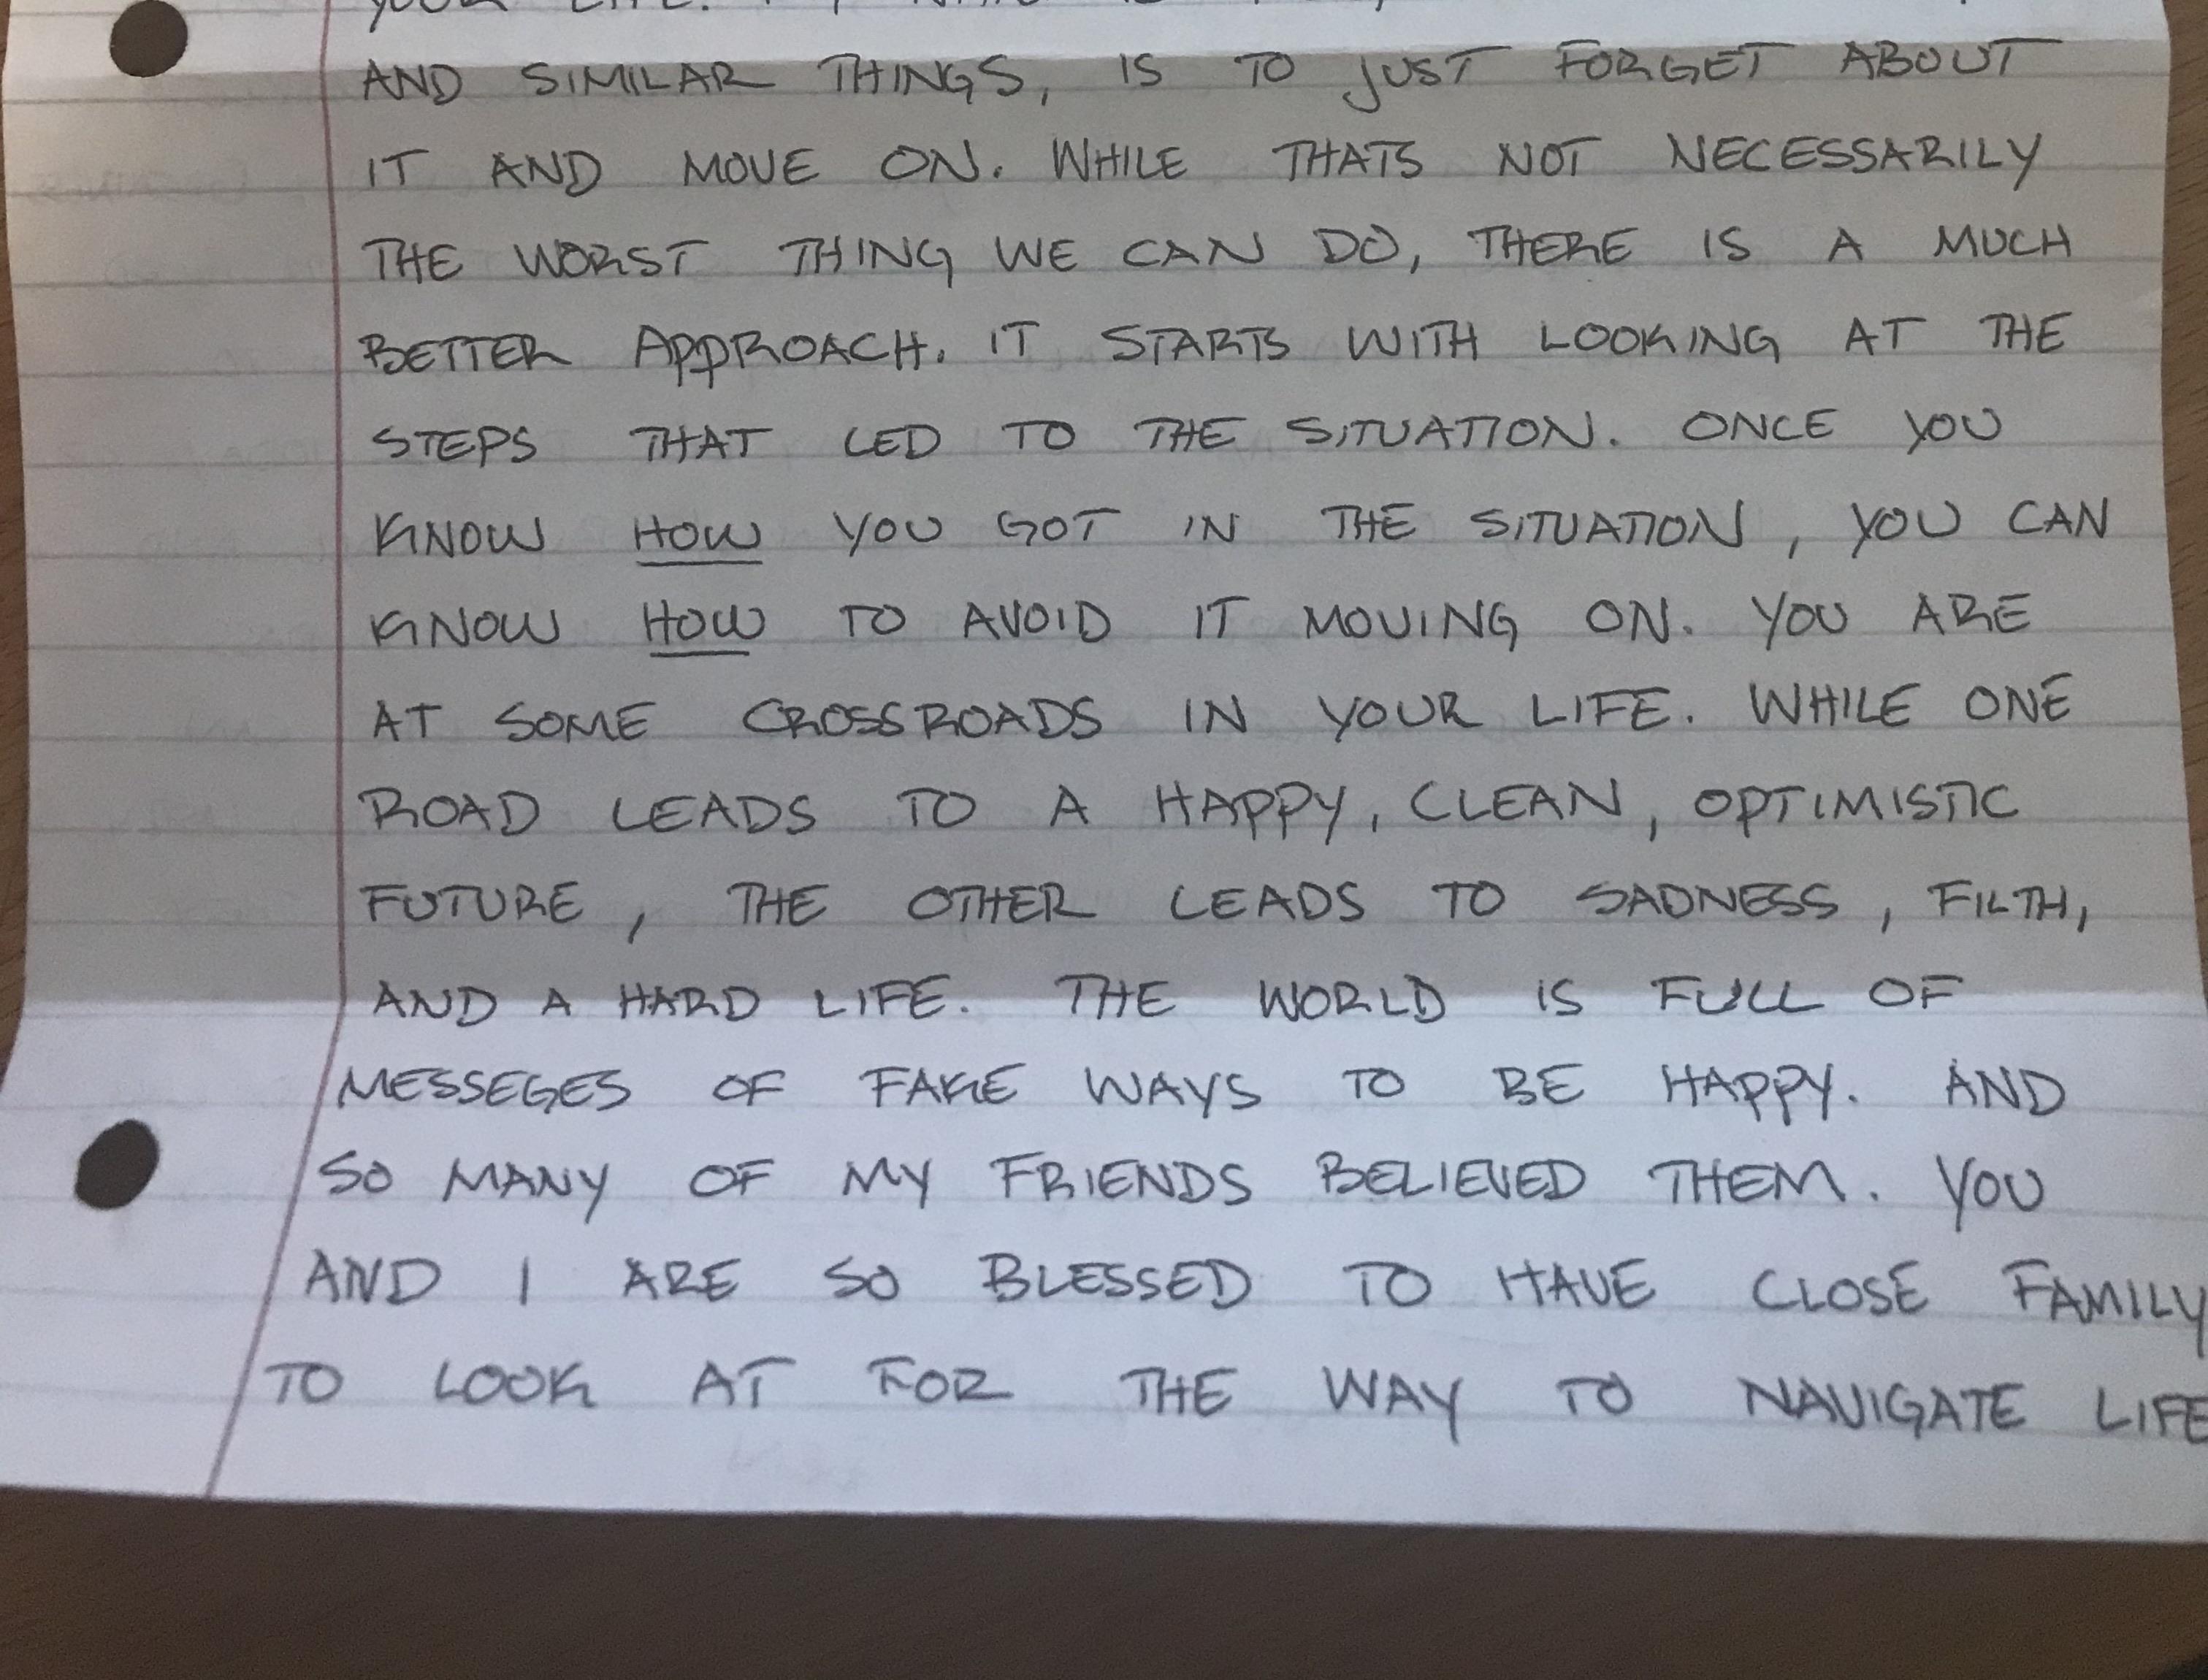 YOUR LIFE.
AND SIMILAR THINGS, IS TO JUST FORGET ABOUT
IT AND MOVE ON. WHILE THATS NOT NECESSARILY
THE WORST THING WE CAN DO, THERE IS A MUCH
BETTER APPROACH. IT STARTS WITH LOOKING AT THE
STEPS THAT LED TO THE SITUATION. ONCE YOU
KNOW HOW YOU GOT IN THE SITUATION, YOU CAN
KNOW HOW TO AVOID IT MOVING ON. YOU ARE
AT SOME CROSSROADS IN YOUR LIFE. WHILE ONE
ROAD LEADS TO A HAPPY, CLEAN, OPTIMISTIC
FUTURE, THE OTHER LEADS TO SADNESS, FILTH,
AND A HARD LIFE. THE WORLD IS FULL OF
MESSEGES OF FAKE WAYS TO BE HAPPY. AND
SO MANY OF MY FRIENDS BELIEVED THEM. YOU
AND I ARE SO BLESSED TO HAVE CLOSE FAMILY
TO LOOK AT FOR THE WAY TO NAVIGATE LIFE